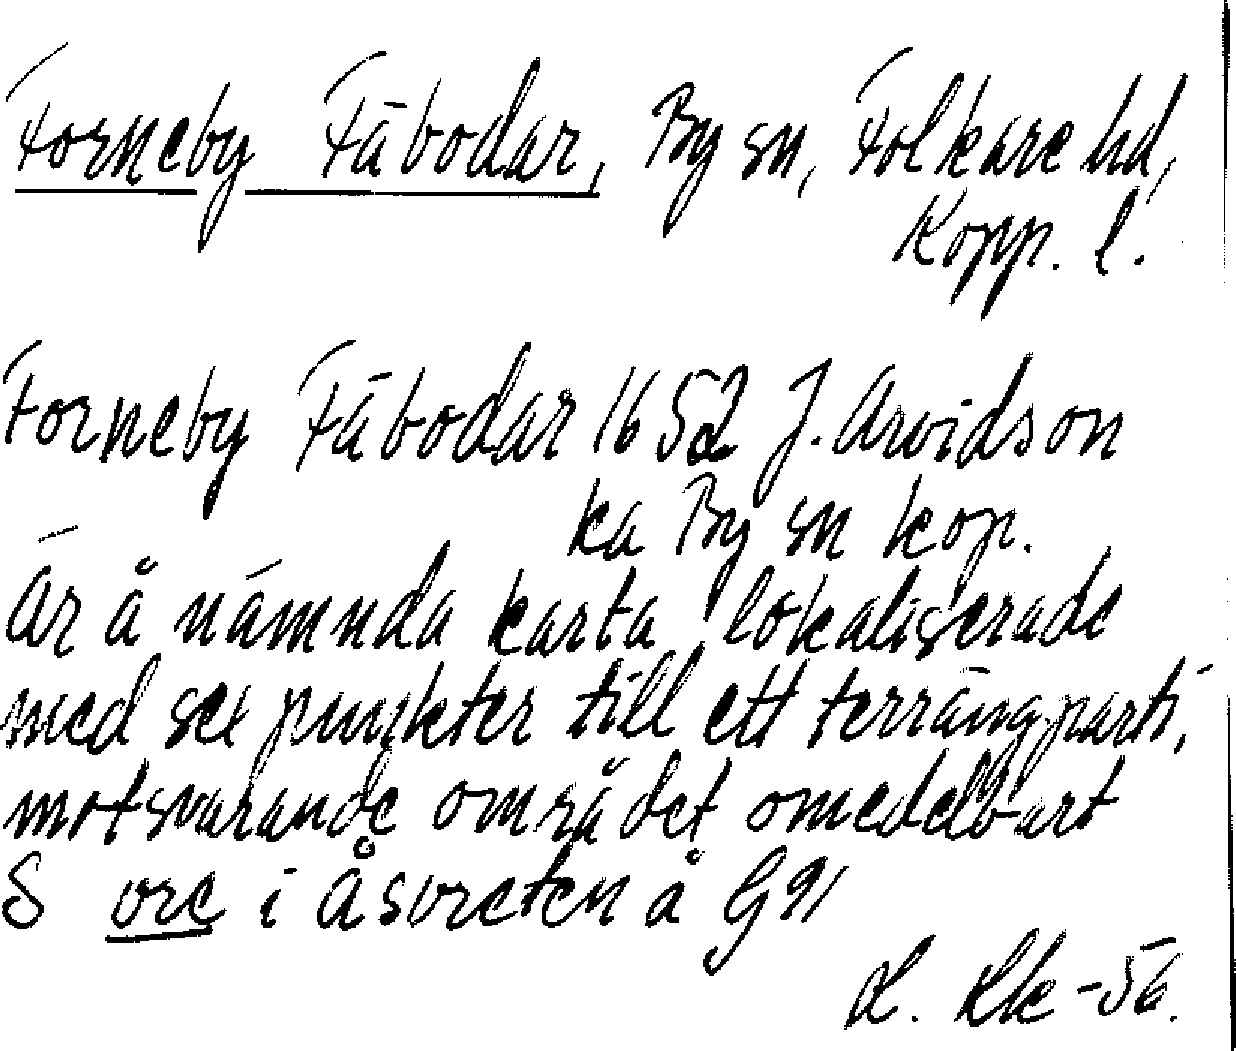 Forneby Fäbodar, By sn, Folkare hd,
Kopp. l.
Forneby Fäbodar 1652 J. Arvidson
ka By sn kop.
Är å nämnda karta lokaliserade
med sex punkter till ett terrängparti,
motsvarande området omedelbart
S vre i Åsvreten å G91
-56.